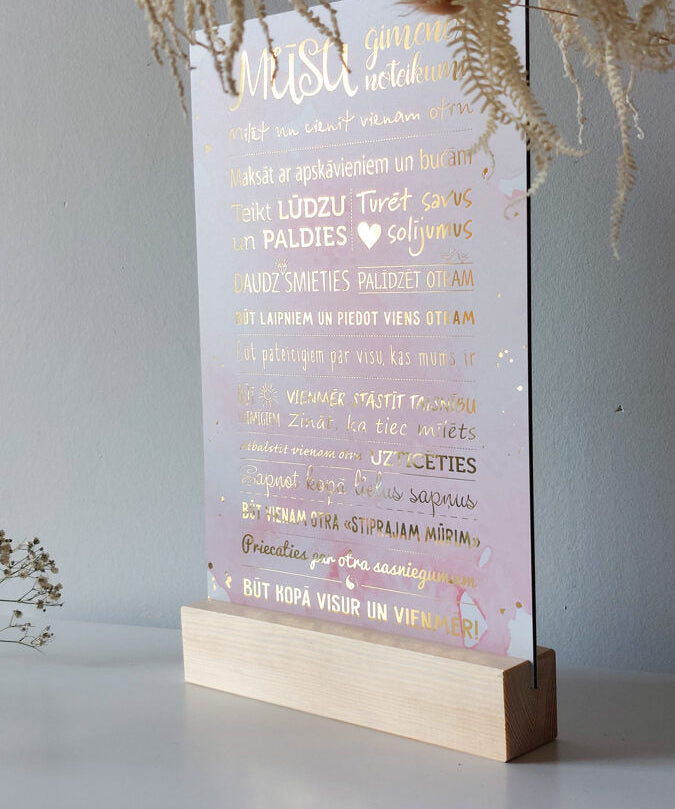 Mūsu ģimenes noteikumi
Mīlēt un cienīt vienam otru
Maksāt ar apskāvieniem un bučām
Teikt LŪDZU un PALDIES
Turēt savus solījumus
DAUDZ SMIETIES PALĪDZĒT OTRAM
BŪT LAIPNIEM UN PIEDOT VIENS OTRAM
Būt pateicīgiem par visu, kas mums ir
BŪT LAIMĪGIEM
VIENMĒR STĀSTĪT TAISNĪBU
Zināt, ka tiec mīlēts
Atbalstīt vienam otru UZTICĒTIES
Sapņot kopā lielus sapņus
BŪT VIENAM OTRA «STIPRAJAM MŪRIM»
Priecāties par otra sasniegumiem
BŪT KOPĀ VISUR UN VIENMĒR!